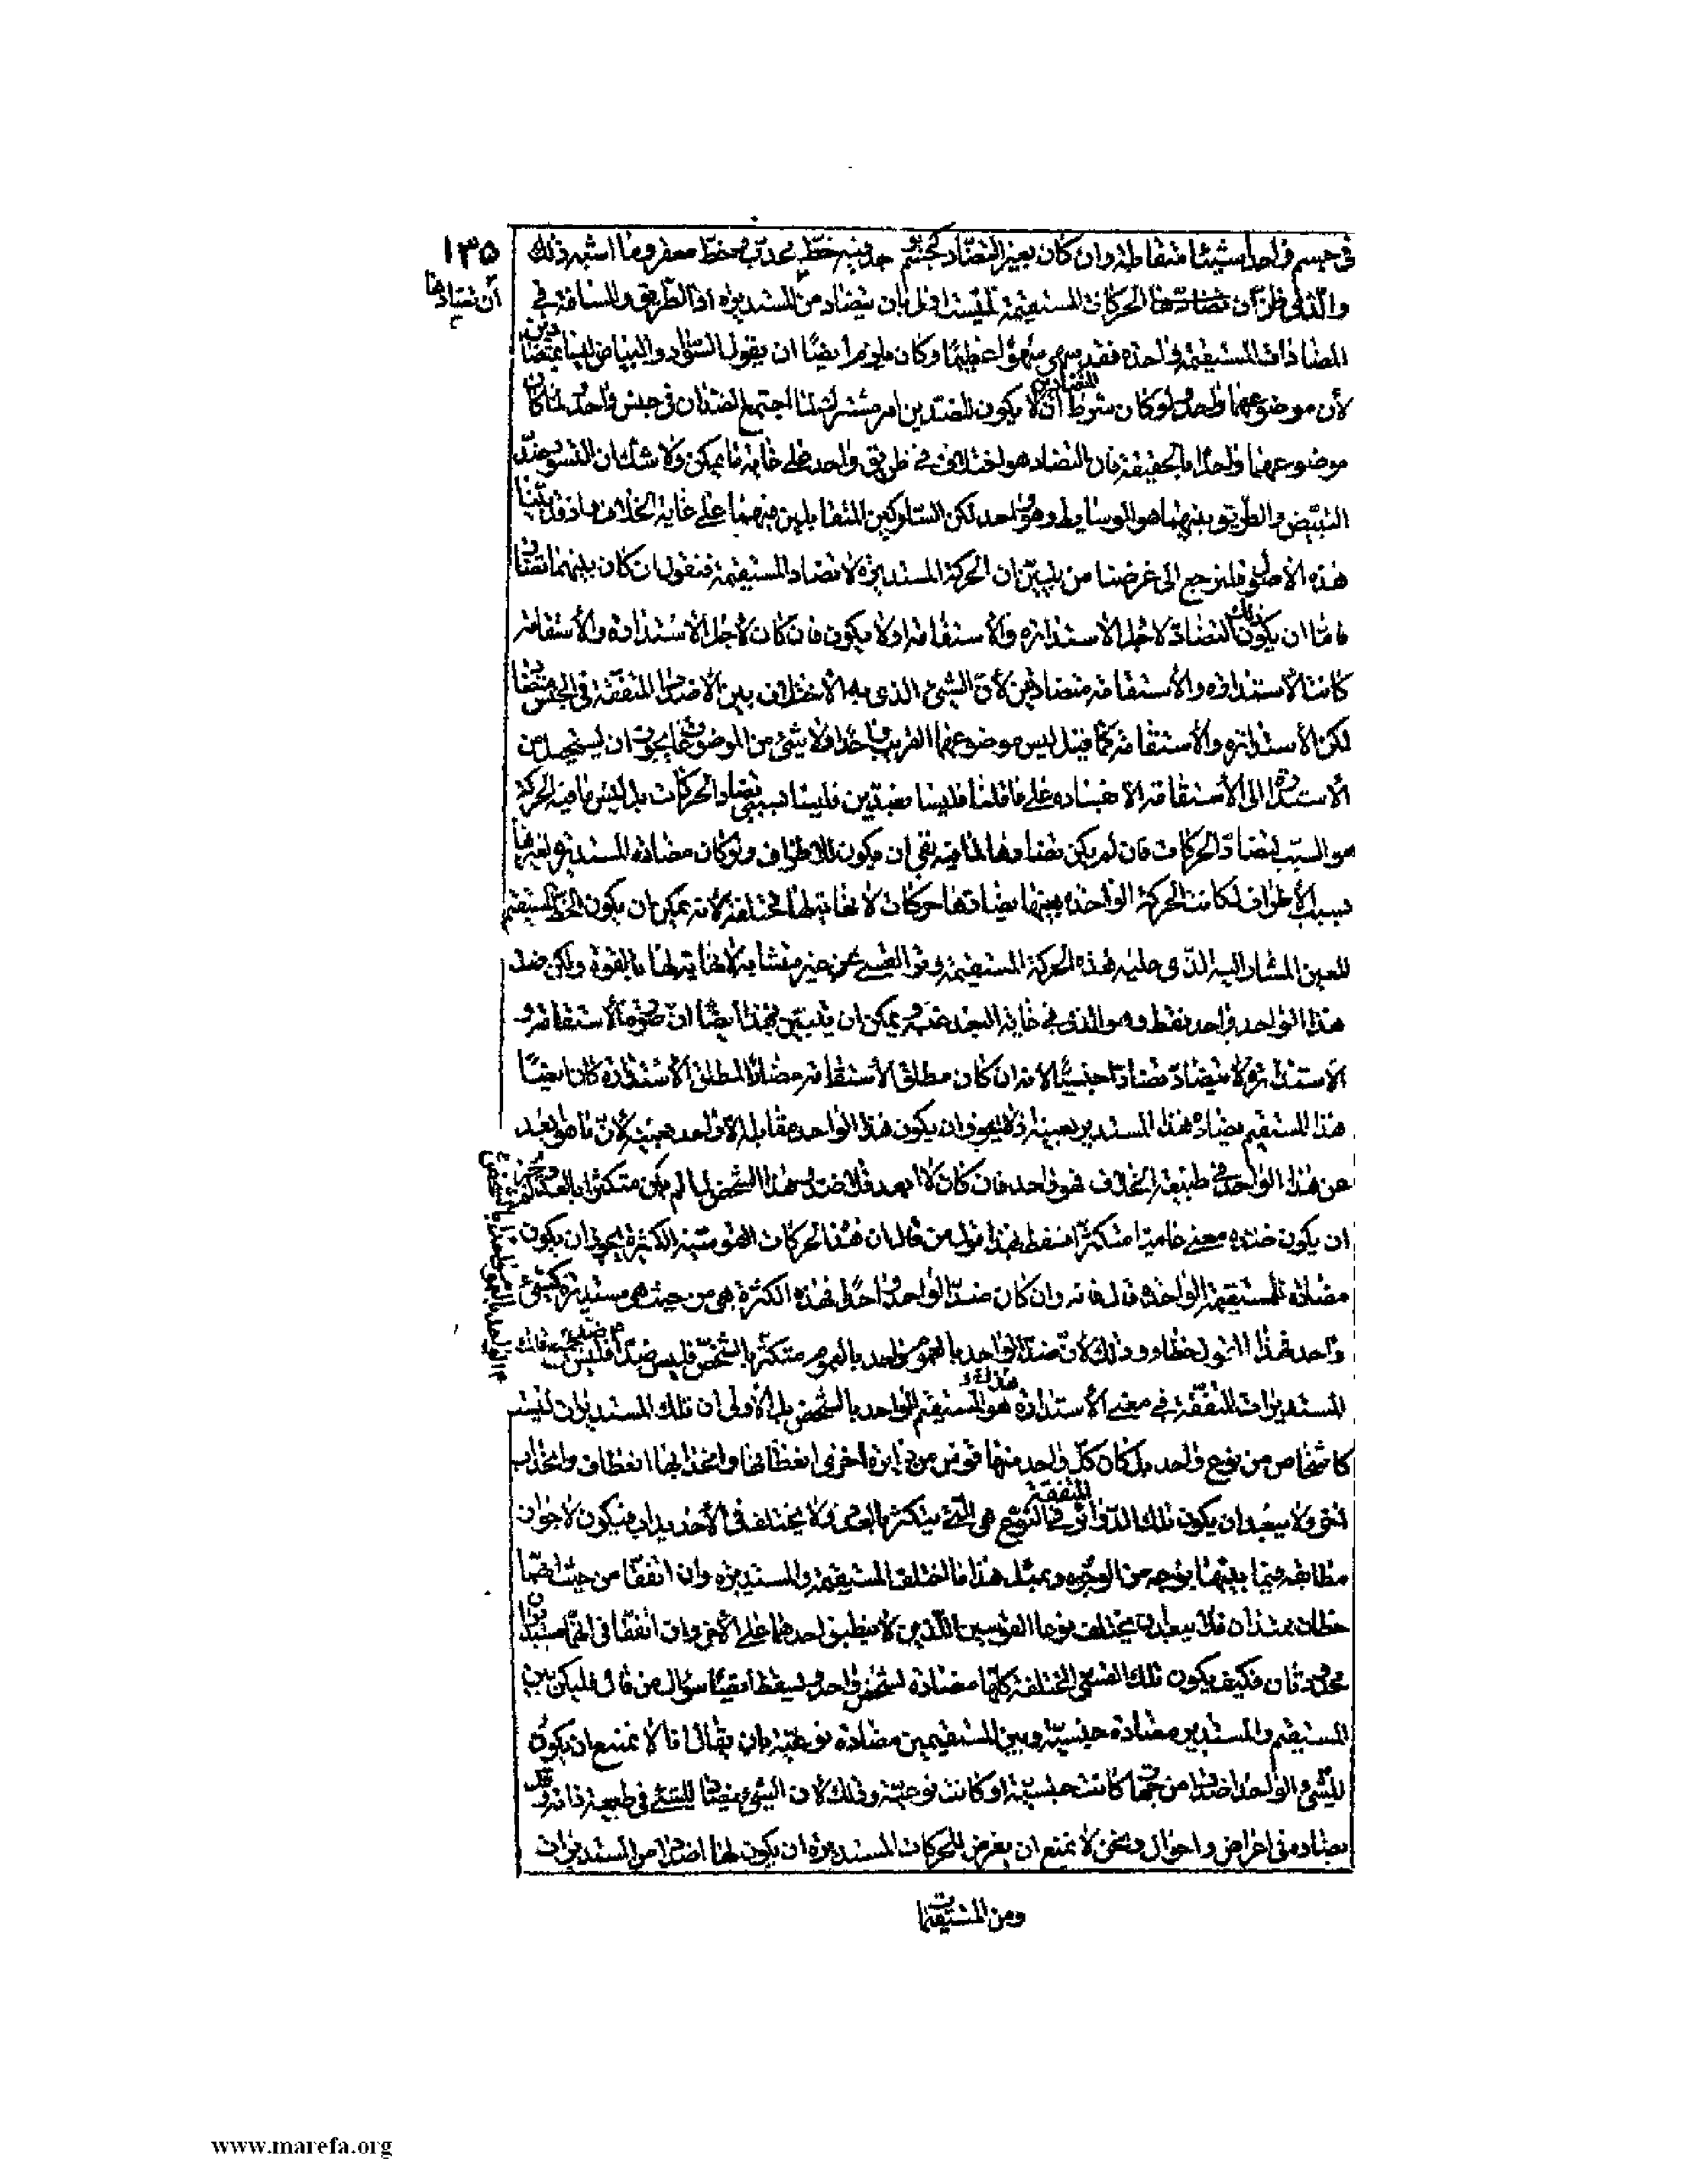 ١٣٥
فى جسم واحد اشيئا متقابلة وان كان بغير التضاد كجسم حد فيه خط محدب وخط مقعر وما اشبه ذلك
والذى ظن ان تضادها الحركات المستقيمة ليست اولى بان يضاد من المستديرة اذ الطريق والمسافة فى
ان تضادها
المضادات المستقيمة واحدة فقد سهى سهوا عظيما وكان يلزم ايضا ان يقول السواد والبياض ليسا بمتضادين
لأن موضوعهما واحد ولو كان شرط المتضادين ان لا يكون للضدين امر مشترك لما اجتمع الضدان فى جنس واحد ولما كان
موضوعهما واحدا بالحقيقة فان التضاد هو اختلاف فى طريق واحد على غاية ما يمكن ولا شك ان التسود ضد
التبيض والطريق بينهما هو الوسايط وهو واحد لكن السلوكين المتقابلين فيهما على غاية الخلاف واذ قد بينا
هذه الاصول فلنرجع الى غرضنا من تبيين ان الحركة المستديرة لا تضاد المستقيمة فنقول ان كان بينهما تضاد
فاما ان يكون ذلك التضاد لاجل الاستدارة والاستقامة او لا يكون فان كان لاجل الاستدارة والاستقامة
كانت الاستدارة والاستقامة متضادتين لأن الشئ الذى به الاختلاف بين الاضداد المتفقة فى الجنس متضاد
لكن الاستدارة والاستقامة كما قيل ليس موضوعهما القريب واحدا ولا شئ من الموضوعات يجوز ان يستحيل من
الاستدارة الى الاستقامة الا بفساده على ما قلنا فليسا بضدين فليسا بسببى تضاد الحركات بل ليس ما فيه الحركة
هو السبب لتضاد الحركات فان لم يكن تضادها لما فيه بقى ان يكون للاطراف ولو كان مضادة المستدير ولغيرها
بسبب الاطراف لكانت الحركة الواحدة بعينها يضادها حركات لا نهاية لها مختلفة لأنه يمكن ان يكون الخط المستقيم
المعين المشار اليه الذى عليه هذه الحركة المستقيمة وتر القسى غير متشابهة لا نهاية لها بالقوة ولكن ضد
هذا الواحد واحد فقط وهو الذى فى غاية البعد عنه ويمكن ان يتبين بهذا ايضا ان صورة الاستقامة و
الاستدارة لا يتضاد تضادا جنسيا لانه ان كان مطلق الاستقامة مضادا لمطلق الاستدارة كان ايضا
هذا المستقيم يضاده هذا المستدير بعينه اذ لا يجوز ان يكون هذا الواحد مقابله الا واحد بعينه لان ما هو ابعد
عن هذا الواحد فى طبيعة الخلاف فهو واحد فان كان لا ابعد فلا ضد لهذا الشخص لما لم يكن متكثرا بالعدد
ان يكون ضده معنى عاميا متكثرا فسقط بهذا قول من قال ان هذه الحركات القوسية الكثيرة يجوز ان يكون
مضادة للمستقيمة الواحدة قال فانه وان كان ضد الواحد واحدا فهذه الكثرة هى من حيث هى مستديرة كشئ
واحد فهذا القول خطاء وذلك لأن ضد الواحد بالعموم واحد بالعموم متكثر بالشخص فليس ضدا فليس
المستديرات المتفقة فى معنى الاستدارة هو المستقيم الواحد بالشخص بل الاولى ان تلك المستديرات ليست
كاشخاص من نوع واحد بل كان كل واحد منها قوس من دايرة اخرى انعطافها وانحدابها انعطاف وانحداب
شتى ولا يبعد ان يكون تلك الدواير المتفقة فى النوع هى التى يتكثر بالعدد ولا يختلف فى الاحديداب فيكون لا جواز
مطابقة فيما بينها بوجه من الوجوه وبمثل هذا ما اختلف المستقيمة والمستديرة وان اتفقا من حيث انهما
خطان ممتدان فلا يبعد ان يختلف نوعا القوسين اللذين لا ينطبق احدهما على الاخر وان اتفقا فى انهما مستديران
محدودتان فكيف يكون تلك القسى المختلفة كلها مضادة لشخص واحد ويسقط ايضا سؤال من قال فليكن بين
المستقيم والمستدير مضادة جنسية وبين المستقيمين مضادة نوعية بان يقال انا لا نمنع ان يكون
للشئ الواحد اضداد من جهات كانت جنسية او كانت نوعية وذلك لان الشئ يضاد الشئ فى طبيعة ذاته وقد
يضاده فى اعراض واحوال ونحن لا نمنع ان يعرض للحركات المستديرة ان يكون لها اضداد من المستديرات
ومن المستقيمات
www.marefa.org